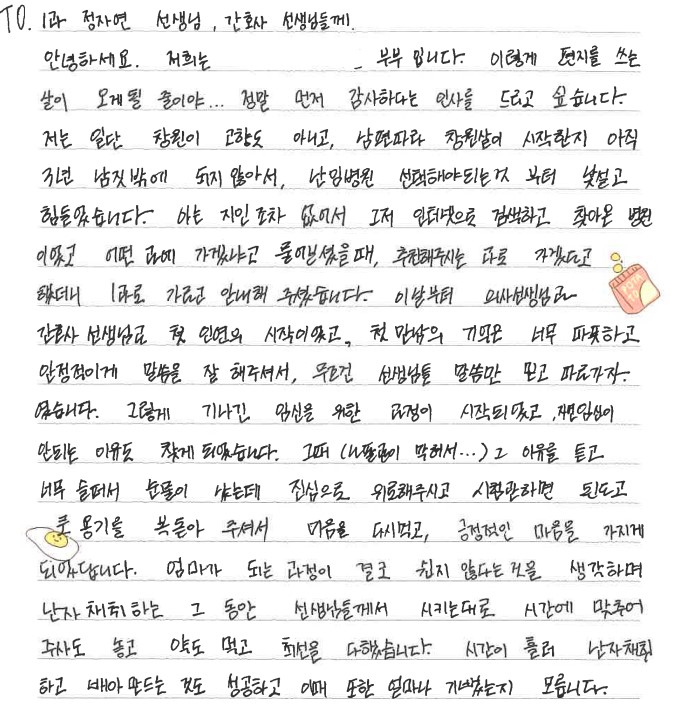 TO. 1과 정자연 선생님, 간호사 선생님들께.
안녕하세요. 저희는 부부 입니다. 이렇게 편지를 쓰는
날이 오게될 줄이야... 정말 먼저 감사하다는 인사를 드리고 싶습니다.
저는 일단 창원이 고향도 아니고, 남편따라 창원살이 시작한지 아직
3년 남짓밖에 되지 않아서, 난임병원 선택해야되는것 부터 낯설고
힘들었습니다. 아는 지인조차 없어서 그저 인터넷으로 검색하고 찾아온 병원
이었고 어떤 과에 가겠냐고 물어보셨을때, 추천해주시는 과로 가겠다고
했더니 1과로 가라고 안내해 주셨습니다. 이날부터 의사선생님과
간호사 선생님과 첫 인연의 시작이었고, 첫 만남의 기억은 너무 따뜻하고
안정적이게 말씀을 잘 해주셔서, 무조건 선생님들 말씀만 믿고 따르자.
였습니다. 그렇게 기나긴 임신을 위한 과정이 시작되었고, 자연임신이
안되는 이유도 찾게 되었습니다. 그때 (나팔관이 막혀서...) 그 이유를 듣고
너무 슬퍼서 눈물이 났는데 진심으로 위로해주시고 시험관하면 된다고
큰 용기를 북돋아 주셔서 마음을 다시먹고, 긍정적인 마음을 가지게
되었답니다. 엄마가 되는 과정이 결코 쉽지 않다는것을 생각하며
난자채취하는 그 동안 선생님들께서 시키는대로 시간에 맞추어
주사도 놓고 약도 먹고 최선을 다했습니다. 시간이 흘러 난자채취
하고 배아 만드는 것도 성공하고 이때 또한 얼마나 기뻤는지 모릅니다.